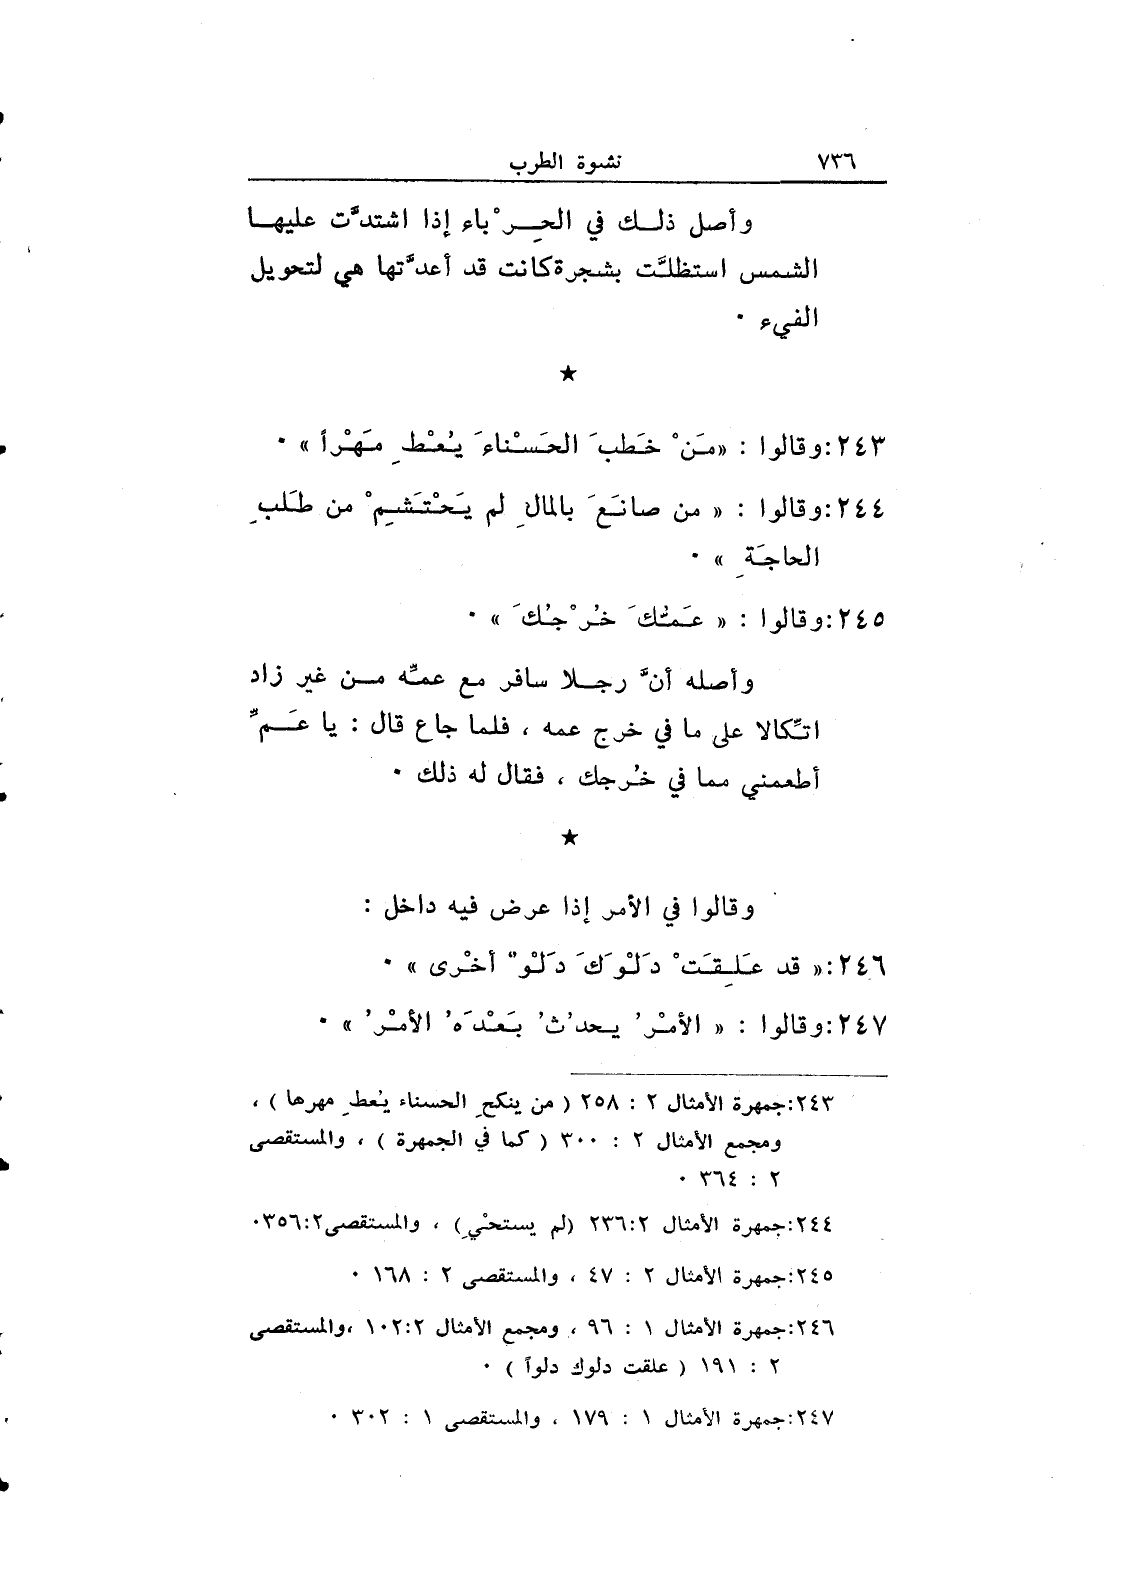 ٧٣٦ نشوة الطرب
وأصل ذلك في الحِرْباء إذا اشتدَّت عليها
الشمس استظلَّت بشجرة كانت قد أعدَّتها هي لتحويل
الفيء ٠
★
٢٤٣: وقالوا : «مَنْ خَطبَ الحَسْناءَ يُعْطِ مَهْراً» ٠
٢٤٤: وقالوا : « من صانَعَ بالمالِ لم يَحْتَشِمْ من طلَبِ
الحاجَةِ » ٠
٢٤٥: وقالوا : « عَمَّكَ خُرْجُكَ » ٠
وأصله أنَّ رجلا سافر مع عمِّه من غير زاد
اتِّكالا على ما في خرج عمه ، فلما جاع قال : يا عَمِّ
أطعمني مما في خُرجك ، فقال له ذلك ٠
★
وقالوا في الأمر إذا عرض فيه داخل :
٢٤٦: « قد عَلِقَتْ دَلْوَكَ دَلْوٌ أخْرى » ٠
٢٤٧: وقالوا : « الأمْرُ يحدُثُ بَعْدَهُ الأمْرُ » ٠
٢٤٣: جمهرة الأمثال ٢ : ٢٥٨ ( من ينكحِ الحسناء يُعطِ مهرها ) ،
ومجمع الأمثال ٢ : ٣٠٠ ( كما في الجمهرة ) ، والمستقصى
٢ : ٣٦٤ ٠
٢٤٤: جمهرة الأمثال ٢:٢٣٦ (لم يستحْيِ) ، والمستقصى٢:٣٥٦٠
٢٤٥: جمهرة الأمثال ٢ : ٤٧ ، والمستقصى ٢ : ١٦٨ ٠
٢٤٦: جمهرة الأمثال ١ : ٩٦ ، ومجمع الأمثال ٢:١٠٢ ،والمستقصى
٢ : ١٩١ ( علقت دلوك دلواً ) ٠
٢٤٧: جمهرة الأمثال ١ : ١٧٩ ، والمستقصى ١ : ٣٠٢ ٠